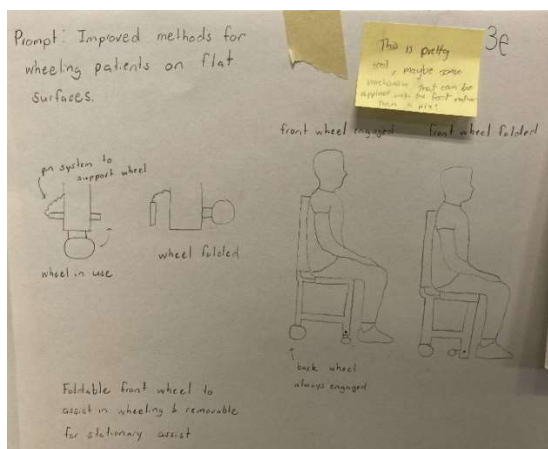 Prompt: Improved methods for
wheeling patients on flat
surfaces.
3e
This is pretty
cool, maybe some
mechanism that can be
applied with the foot rather
than a pin?
front wheel engaged
front wheel folded
pin system to
support wheel
wheel in use
wheel folded
back wheel
always engaged
Foldable front wheel to
assist in wheeling & removable
for stationary assist